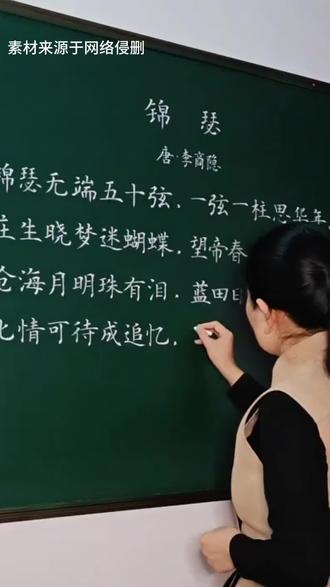 素材来源于网络侵删
锦瑟
唐·李商隐
锦瑟无端五十弦，一弦一柱思华年
庄生晓梦迷蝴蝶，望帝春
沧海月明珠有泪，蓝田日
此情可待成追忆，